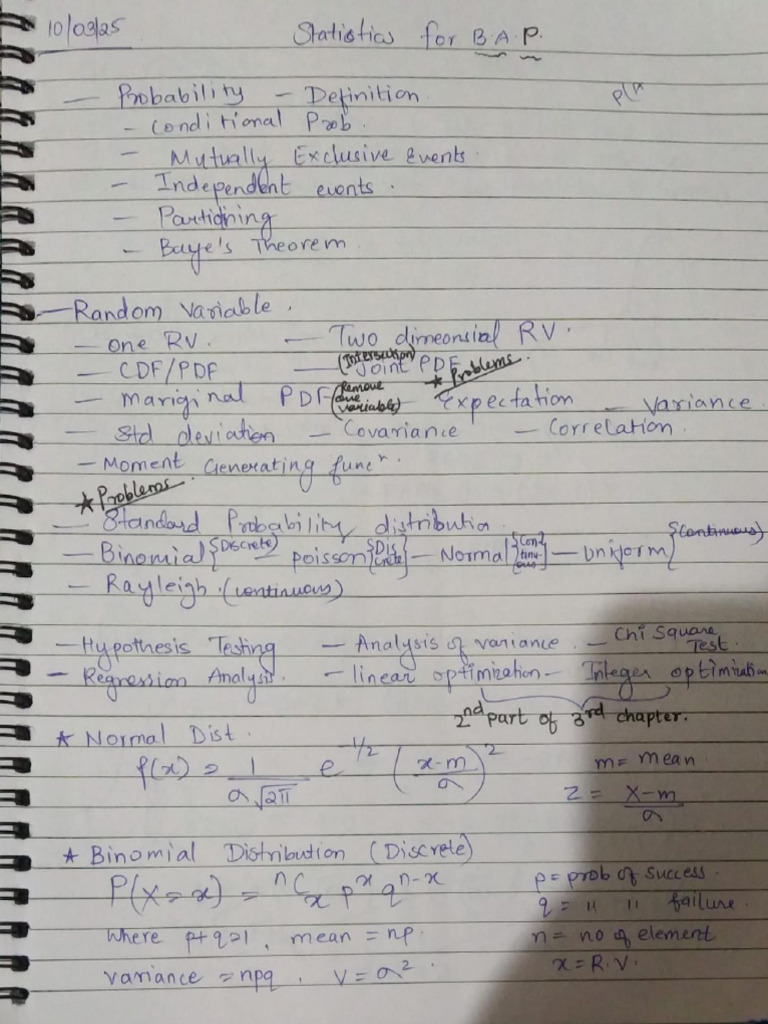 10/03/25 Statistics for B.A.P.
— Probability — Definition. p(x
- Conditional Prob.
- Mutually Exclusive Events.
- Independent events.
- Partioning
- Baye's Theorem.
— Random variable.
- one RV. — Two dimeonsial RV.
- CDF/PDF — (Intersection) Joint PDF
- mariginal PDF (Remove one variable) ★ Problems. — Expectation — Variance.
- Std deviation — Covariance — Correlation.
- Moment Generating funcⁿ.
★ Problems.
— Standard Probability distributio
- Binomial {Discrete} — poisson {Discrete} — Normal {Continuous} — Uniform {(Continuous)
- Rayleigh. (continuous)
— Hypothesis Testing — Analysis of variance. — Chi Square Test.
— Regression Analysis. — linear optimization — Integer optimization
2nd part of 3rd chapter.
★ Normal Dist.
f(x) = 1/(σ√2π) e^-1/2 ((x-m)/σ)² m = mean
Z = (X-m)/σ
★ Binomial Distribution (Discrete)
P(X=x) = ⁿCₓ pˣ qⁿ⁻ˣ p = prob of success.
q = " " failure.
where p+q=1, mean = np. n = no of element
variance = npq. V = σ². x = R.V.